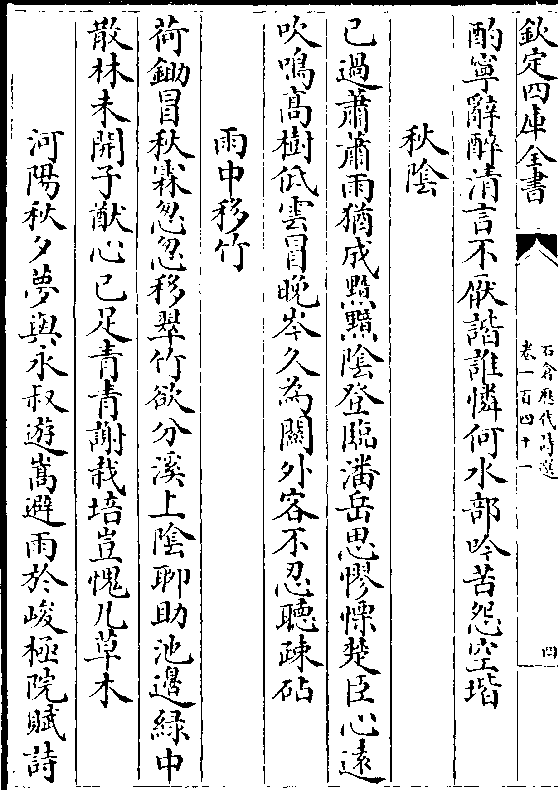 欽定四庫全書
石倉歷代詩選
卷一百四十一
四
酌寧辭醉清言不厭諧誰憐何水部吟苦怨空堦
秋陰
已過蕭蕭雨猶成黯黯陰登臨潘岳思憀慄楚臣心遠
吹鳴高樹低雲冒晚岑久為關外客不忍聽疎砧
雨中移竹
荷鋤冒秋霖忽忽移翠竹欲分溪上陰聊助池邊緑中
散林未開子猷心已足青青謝栽培豈愧凡草木
河陽秋夕夢與永叔遊嵩避雨於峻極院賦詩